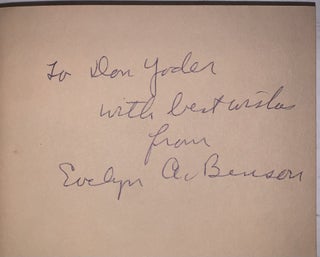 To Don Yoder
with best wishes
from
Evelyn A. Benson